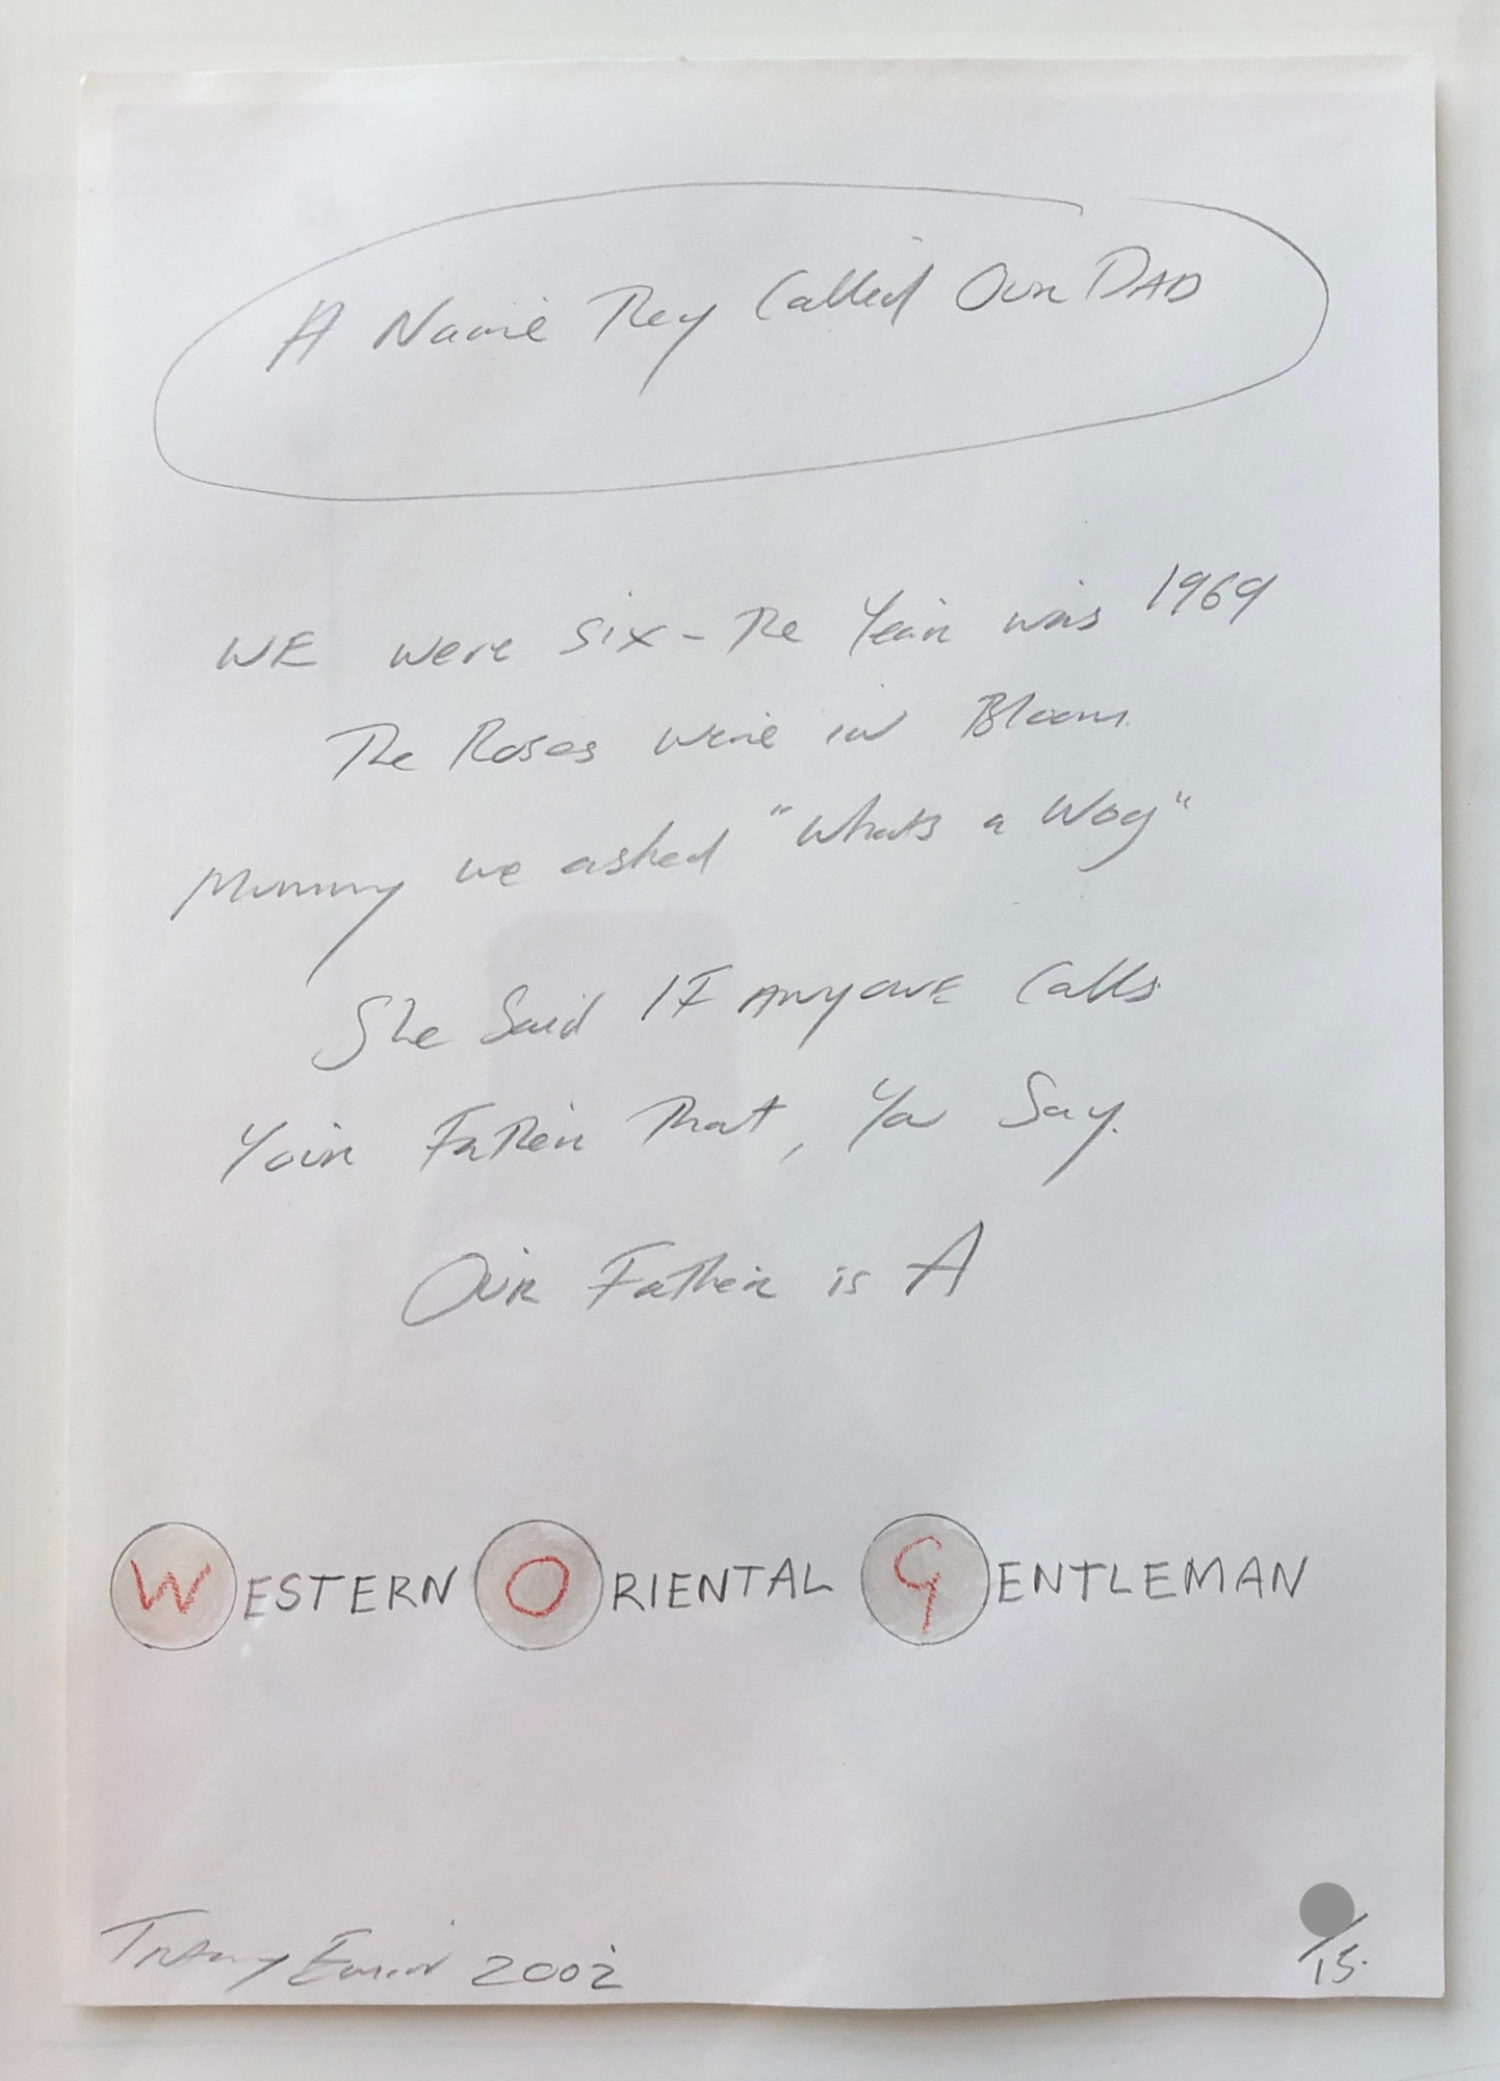 A Name They Called Our DAD
WE were Six - The Year was 1969
The Roses were in Bloom.
Mummy we asked "Whats a Wog"
She Said IF ANYONE Calls
Your Father That, You Say.
Our Father is A
WESTERN ORIENTAL GENTLEMAN
Tracey Emin 2002
/15.